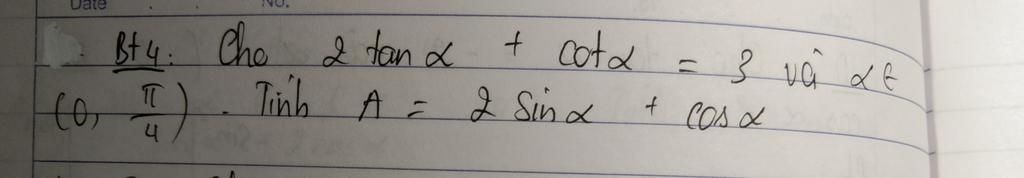 Date No.
Bt4: Cho 2 tanα + cotα = 3 và α ∈
(0, π/4). Tính A = 2 Sinα + cosα